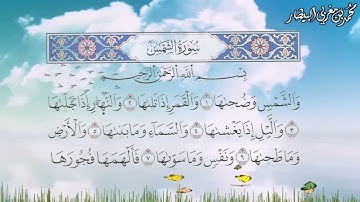 محمد بن مغربي البيضار
سُورَةُ الشَّمْسِ
بِسْمِ اللَّهِ الرَّحْمَٰنِ الرَّحِيمِ
وَالشَّمْسِ وَضُحَىٰهَا ١ وَالْقَمَرِ إِذَا تَلَىٰهَا ٢ وَالنَّهَارِ إِذَا جَلَّىٰهَا
٣ وَالَّيْلِ إِذَا يَغْشَىٰهَا ٤ وَالسَّمَاءِ وَمَا بَنَىٰهَا ٥ وَالْأَرْضِ
وَمَا طَحَىٰهَا ٦ وَنَفْسٍ وَمَا سَوَّىٰهَا ٧ فَأَلْهَمَهَا فُجُورَهَا